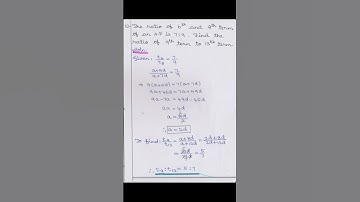 The ratio of 6th and 8th term
of an A.P is 7:9. Find the
ratio of 9th term to 13th term
Soln.
Given: t6/t8 = 7/9
a+5d/a+7d = 7/9
⇒ 9(a+5d) = 7(a+7d)
9a+45d = 7a+49d
9a-7a = 49d-45d
2a = 4d
a = 4d/2
∴ a = 2d
To find: t9/t13 = a+8d/a+12d = 2d+8d/2d+12d
= 10d/14d = 5/7
∴ t9 : t13 = 5 : 7